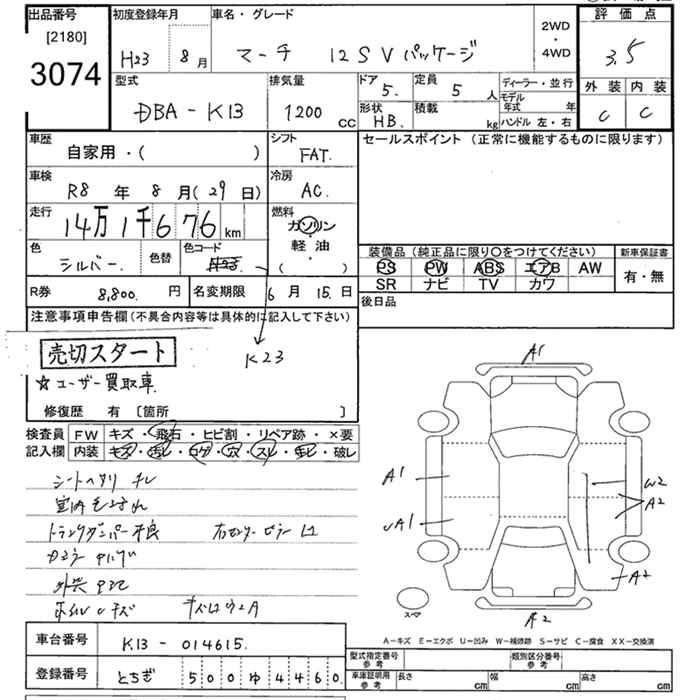 出品番号
[2180]
3074
初度登録年月
H23 8月
車名・グレード
マーチ 12SVパッケージ
2WD
・
4WD
評価点
3.5
外装 内装
C C
型式
DBA-K13
排気量
1200 CC
ドア
5.
定員
5 人
形状
HB.
積載
kg
ディーラー・並行
モデル年式 年
ハンドル 左・右
車歴
自家用・( )
シフト
FAT.
車検
R8 年 8 月(29 日)
冷房
AC.
走行
14万1千676 km
燃料
ガソリン
軽油
( )
色
シルバー.
色替
色コード
K23
R券
8,800. 円
名変期限
6 月 15. 日
セールスポイント (正常に機能するものに限ります)
装備品(純正品に限り○をつけてください)
PS PW ABS エアB AW
SR ナビ TV カワ
新車保証書
有・無
後日品
注意事項申告欄(不具合内容等は具体的に記入して下さい)
売切スタート
☆ユーザー買取車
修復歴 有 [箇所 ]
検査員
記入欄
FW キズ・飛石・ヒビ割・リペア跡・×要
内装 キズ・汚レ・コゲ・穴・スレ・モレ・破レ
トランクダンパー不良
A1
A1
UA1
W2
A2
A2
A2
スペア
A-キズ E-エクボ U-凹み W-補修跡 S-サビ C-腐食 XX-交換済
車台番号
K13-014615.
登録番号
とちぎ 500ゆ4460
型式指定番号
参考
類別区分番号
参考
車庫証明用
参考
長さ cm
幅 cm
高さ cm